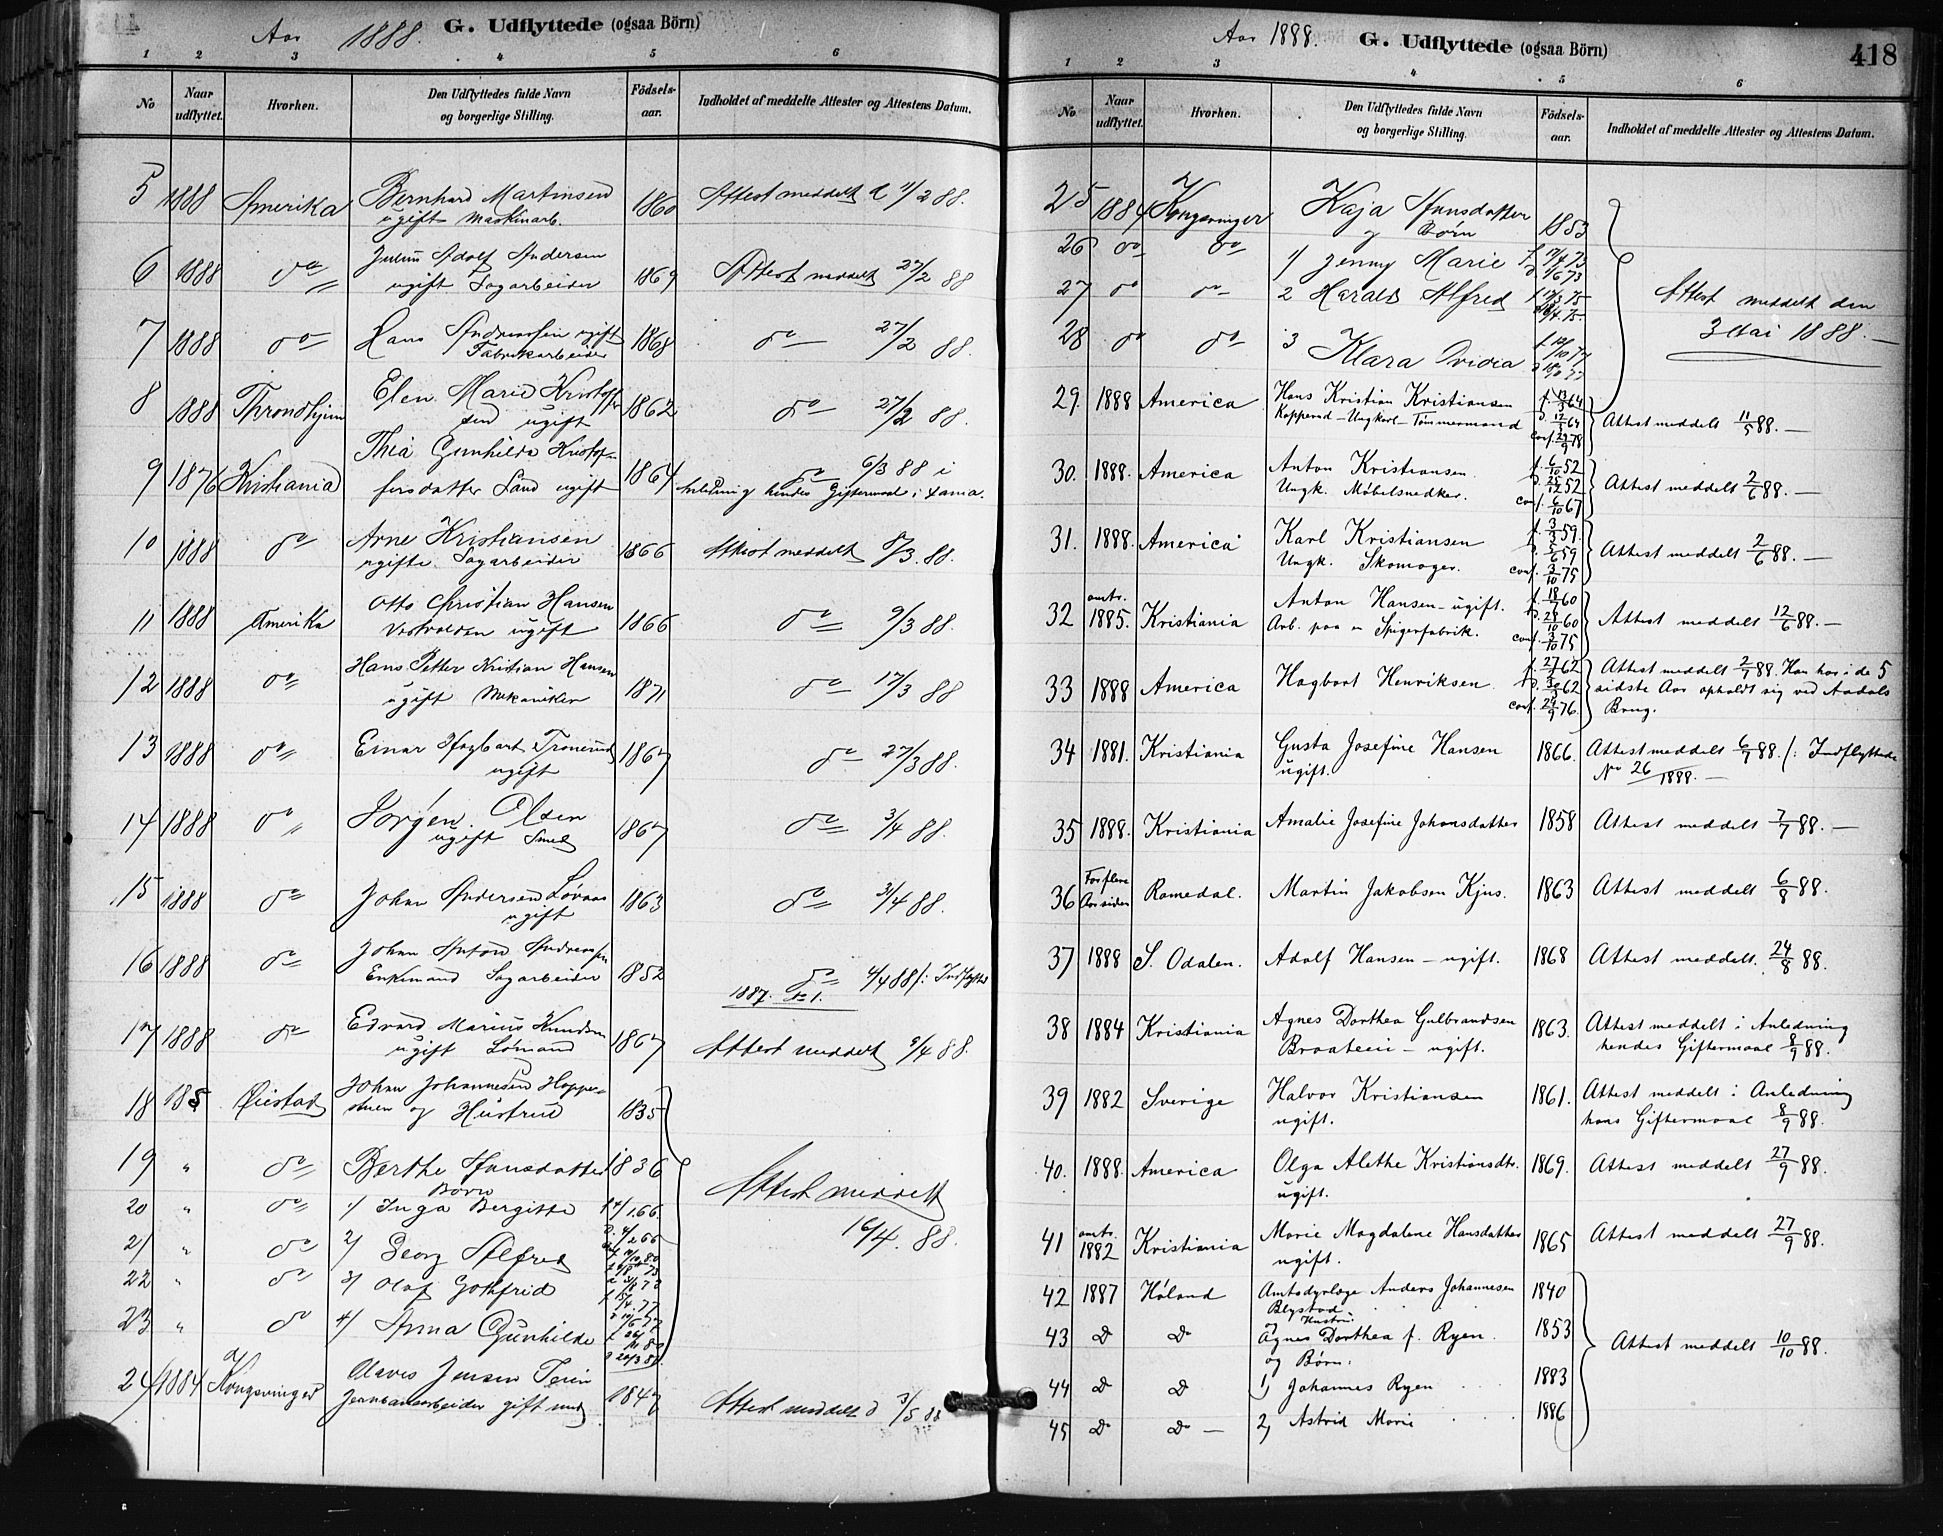 Aar 1888. G. Udflyttede (ogsaa Börn)
1 2 3 4 5 6
No Naar udflyttet. Hvorhen. Den Udflyttedes fulde Navn og borgerlige Stilling. Födsels-aar. Indholdet af meddelte Attester og Attestens Datum.
5 1888 Amerika Bernhard Martinsen 1860 Attest meddelt d 11/2 88.
ugift maskinarb.
6 1888 do Julius Adolf Andersen 1869 Attest meddelt 27/2 88
ugift Sagarbeider
7 1888 do Hans Andreassen ugift 1868 do 27/2 88.
Fabrikarbeider
8 1888 Throndhjem Elen Marie Kristoffer 1862 do 27/2 88.
sen ugift
9 1876 Kristiania Thea Gunhilda Kristof- 1864 do 6/3 88 i
fersdatter Sand ugift Anledning hendes Giftermaal i
10 1888 do Arne Kristiansen 1866 Attest meddelt 8/3. 88.
ugift. Sagarbeider
11 1888 Amerika Otto Christian Hansen 1866 do 9/3 88.
ugift
12 1888 do Hans Petter Kristian Hansen 1871 do 17/3 88
ugift Mekaniker
13 1888 do Einar Hagbart Tronerud 1867 do 27/3 88.
ugift
14 1888 do Jörgen Olsen 1867 do 3/4 88.
ugift Smed
15 1888 do Johan Andersen Lövaas 1863 do 3/4 88.
ugift
16 1888 do Johan Anton Andreassen 1852 do 4/4 88 /: Indflyttet
Enkemand Sagarbeider 1887. No 1.
17 1888 do Edvard Marius Knudsen 1867 Attest meddelt 9/4 88.
ugift Sömand
18 Öiestad Johan Johannesen Hoppe- 1835
stuen og Hustrue
19 " do Berthe Hansdatter 1836 Attest meddelt
Börn
20 " do 1) Inga Bergitte 16/4. 88.
21 " do 2) Georg Alfred
22 " do 3) Olaf Gothfrid
23 " do 4) Anna Gunhilde
24 1884 Kongsvinger Olaves Jensen 1847 Attest meddelt d 3/5 88
Jernbanearbeider gift med
Aar 1888. G. Udflyttede (ogsaa Börn) 418
1 2 3 4 5 6
No Naar udflyttet. Hvorhen. Den Udflyttedes fulde Navn og borgerlige Stilling. Födsels-aar. Indholdet af meddelte Attester og Attestens Datum.
25 1884 Kongsvinger Kaja Hansdatter 1853
og Börn
26 do do 1) Jenny Marie
27 do do 2 Harald Alfred Attest meddelt den
28 do do 3 Klara Ovidia 3 Mai 1888.
29. 1888 America Hans Kristian Kristiansen f. 13/3 64 Attest meddelt 11/5 88.
Kopperud - Ungkarl - Tömmermand
conf. 29/9 78
30. 1888. America Anton Kristiansen f. 6/10 52 Attest meddelt 2/6 88.
Ungk. Möbelsnedker. D. 25/12 52
conf. 6/10 67
31. 1888. America Karl Kristiansen Attest meddelt 2/6 88.
Ungk. Skomager. conf. 3/10 75
32 omtr. 1885. Kristiania Anton Hansen - ugift. f. 18/7 60 Attest meddelt 12/6 88.
Arb. paa en Spigerfabrik. D. 28/10 60
conf. 3/10 75
33 1888 America Hagbart Henriksen Attest meddelt 2/7 88. Han har i de 5
sidste Aar opholdt sig ved Aadals
conf. 24/9 76. Brug.
34 1881. Kristiania Gusta Josefine Hansen 1866. Attest meddelt 6/7 88. /: Indflyttede
ugift. No 26/1888.
35 1888. Kristiania Amalie Josefine Johansdatter 1858 Attest meddelt 7/7 88.
36 For flere Aar siden Romedal. Martin Jakobsen Kjus. 1863 Attest meddelt 6/8 88.
37 1888 S. Odalen. Adolf Hansen - ugift. 1868 Attest meddelt 24/8 88.
38 1884 Kristiania Agnes Dorthea Gulbrandsen 1863. Attest meddelt i Anledning
Braateii - ugift. hendes Giftermaal 8/9 88.
39 1882 Sverige Halvor Kristiansen 1861. Attest meddelt i Anledning
ugift. hans Giftermaal 8/9 88.
40. 1888. America Olga Alethe Kristiansdtr. 1869. Attest meddelt 27/9 88.
ugift.
41 omtr. 1882 Kristiania Marie Magdalene Hansdatter 1865 Attest meddelt 27/9 88.
ugift.
42 1887 Höland Amtsdyrlæge Anders Johannesen 1840
Blystad
og Hustru
43 D D Agnes Dorthea f. Ryen. 1853 Attest meddelt 10/10 88.
og Börn:
44 D D 1) Johannes Ryen 1883
45 D D 2) Astrid Marie 1886